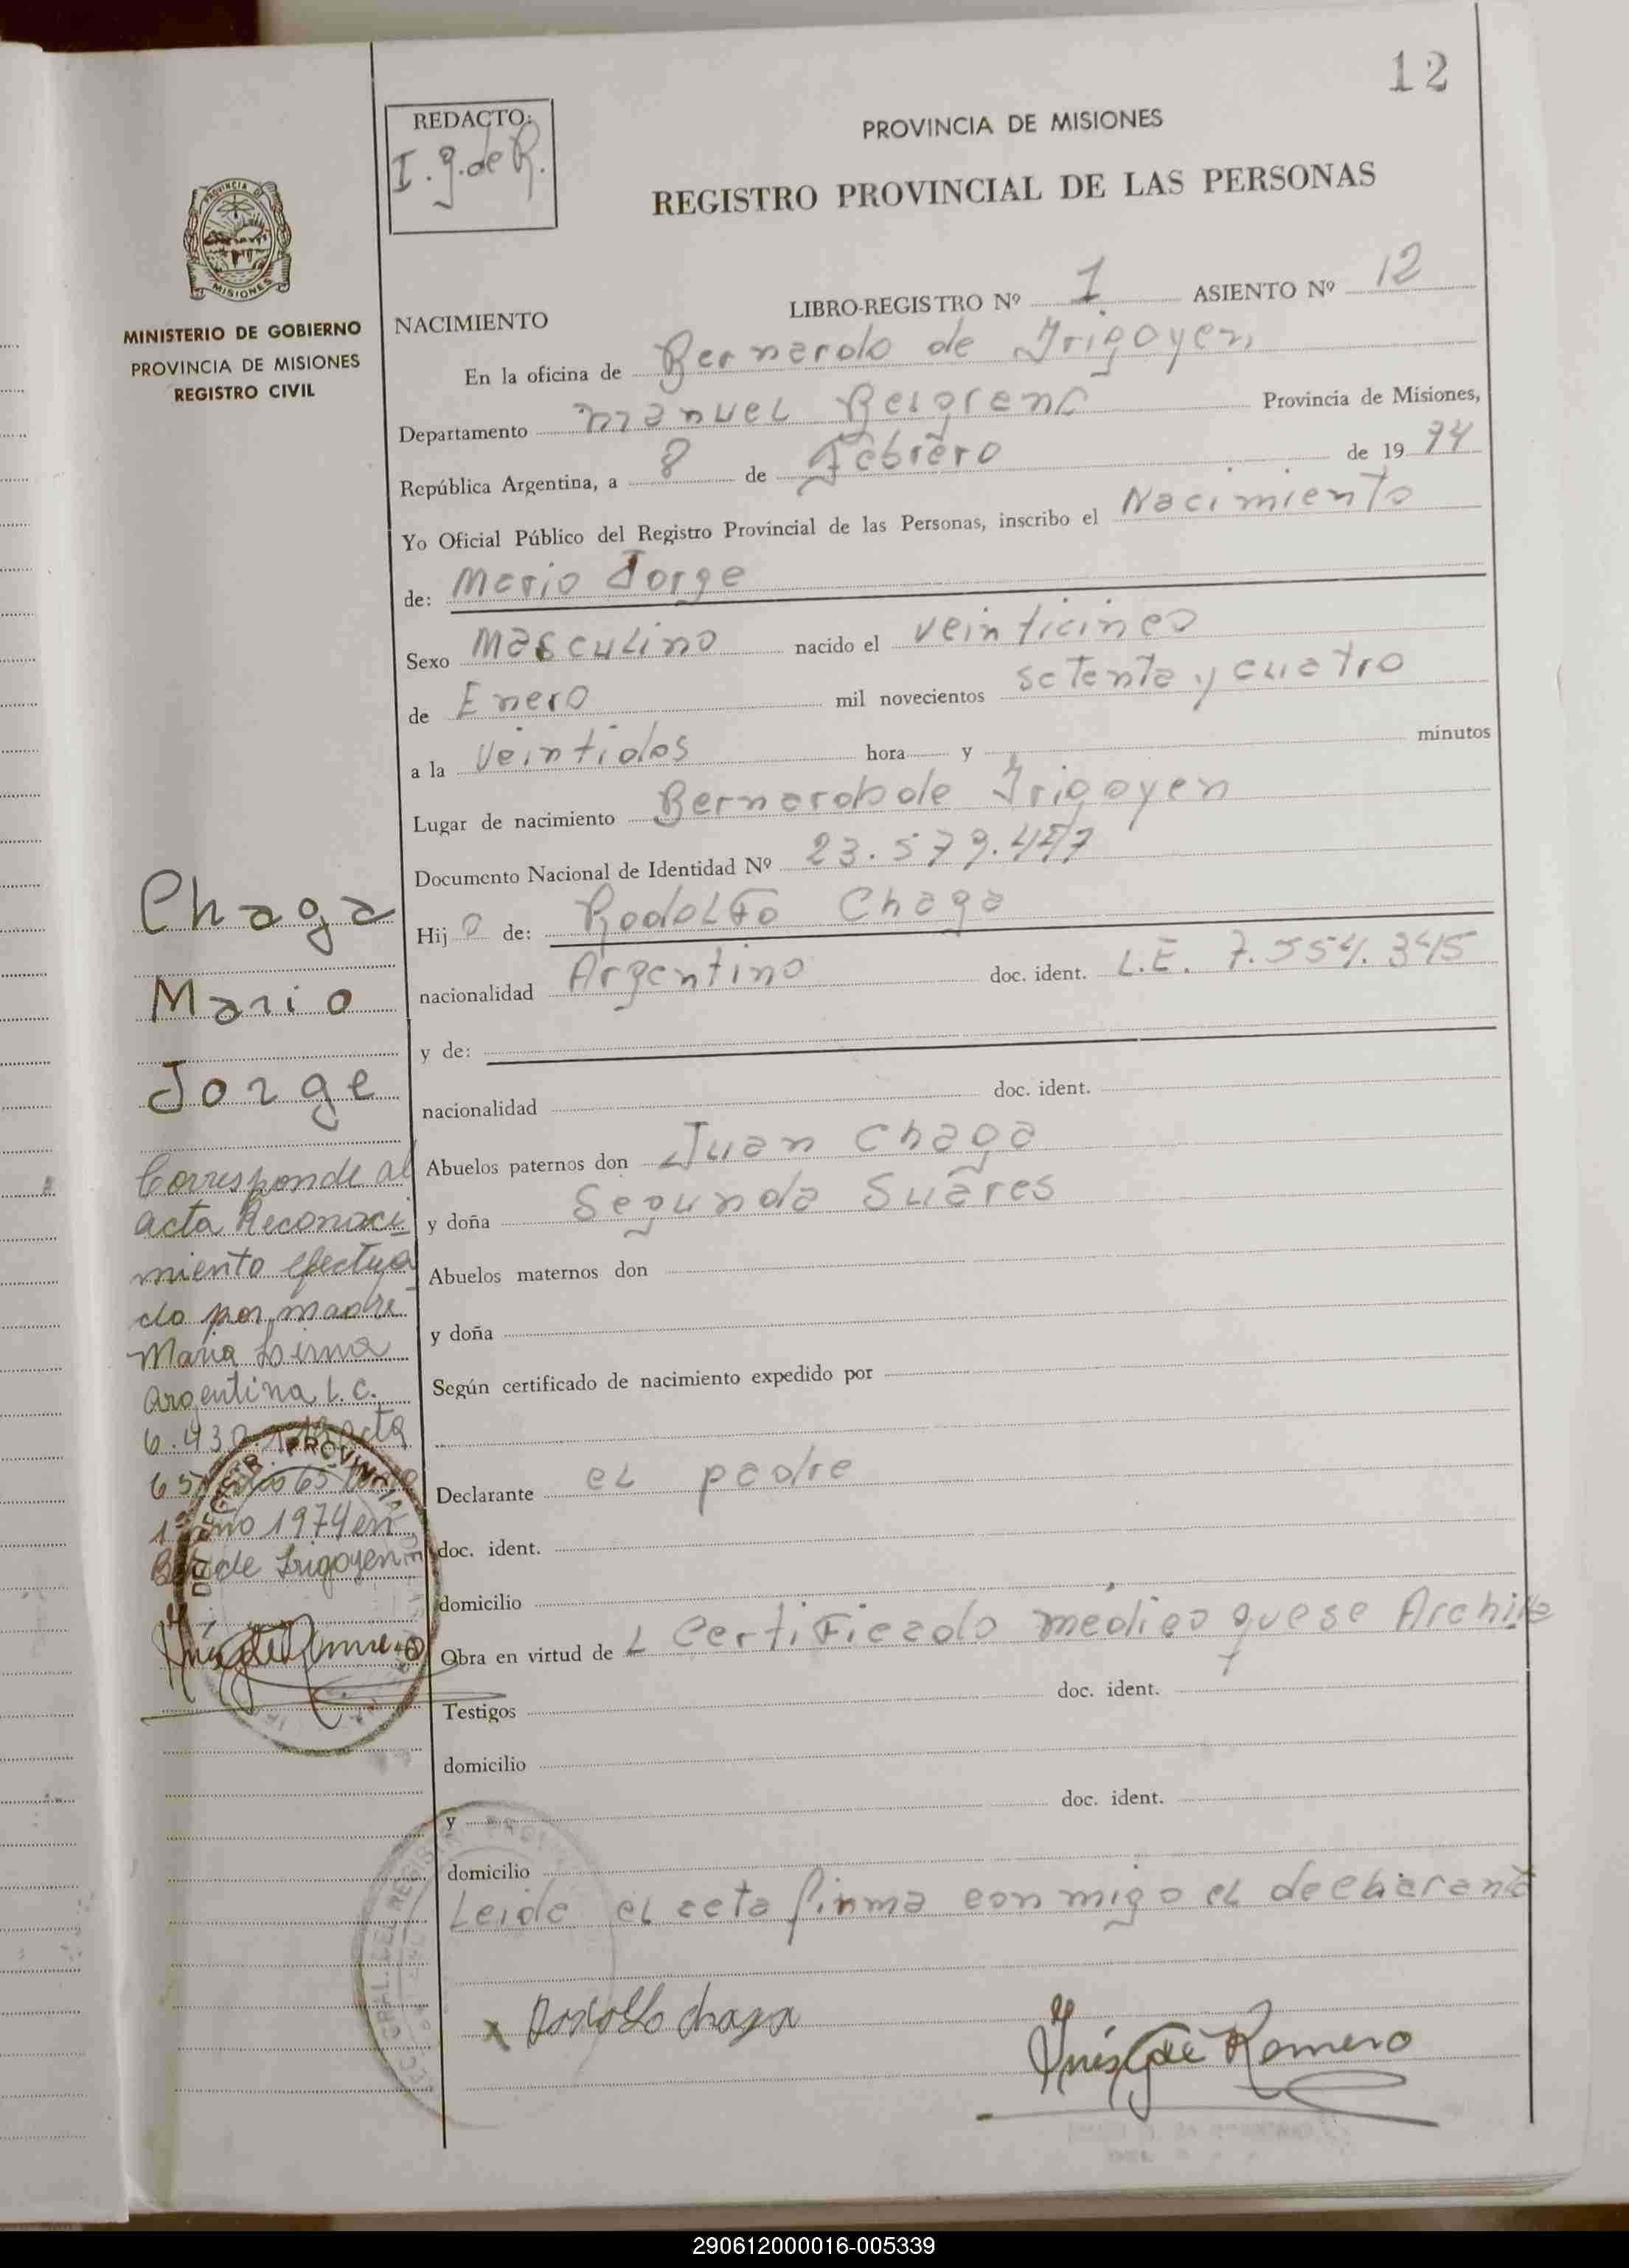 12
REDACTO:
I. g. de R.
PROVINCIA DE MISIONES
REGISTRO PROVINCIAL DE LAS PERSONAS
PROVINCIA DE
MISIONES
MINISTERIO DE GOBIERNO
PROVINCIA DE MISIONES
REGISTRO CIVIL
NACIMIENTO
LIBRO-REGISTRO Nº 1 ASIENTO Nº 12
En la oficina de Bernardo de Irigoyen
Departamento Manuel Belgrano Provincia de Misiones,
República Argentina, a 8 de Febrero de 19 74
Yo Oficial Público del Registro Provincial de las Personas, inscribo el Nacimiento
de: Mario Jorge
Sexo Masculino nacido el veinticinco
de Enero mil novecientos setenta y cuatro
a la veintidos hora y minutos
Lugar de nacimiento Bernardo de Irigoyen
Documento Nacional de Identidad Nº 23.579.
Hij o de: Rodolfo Chaga
nacionalidad Argentino doc. ident. L.E. 7.554.345
y de:
nacionalidad doc. ident.
Abuelos paternos don Juan Chaga
y doña Segunda Suares
Abuelos maternos don
y doña
Según certificado de nacimiento expedido por
Declarante el padre
doc. ident.
domicilio
Obra en virtud de L Certificado médico que se Archiva
Testigos doc. ident.
domicilio
y doc. ident.
domicilio
Leida el acta firma conmigo el declarante
Rodolfo chaga
Inés G de Romero
Chaga
Mario
Jorge
Corresponde al
acta Reconoci
miento efectua
do por madre
Maria Lima
argentina L.C.
6.430. acta
65 65 tomo
1º año 1974 en
Bdo de Irigoyen
290612000016-005339